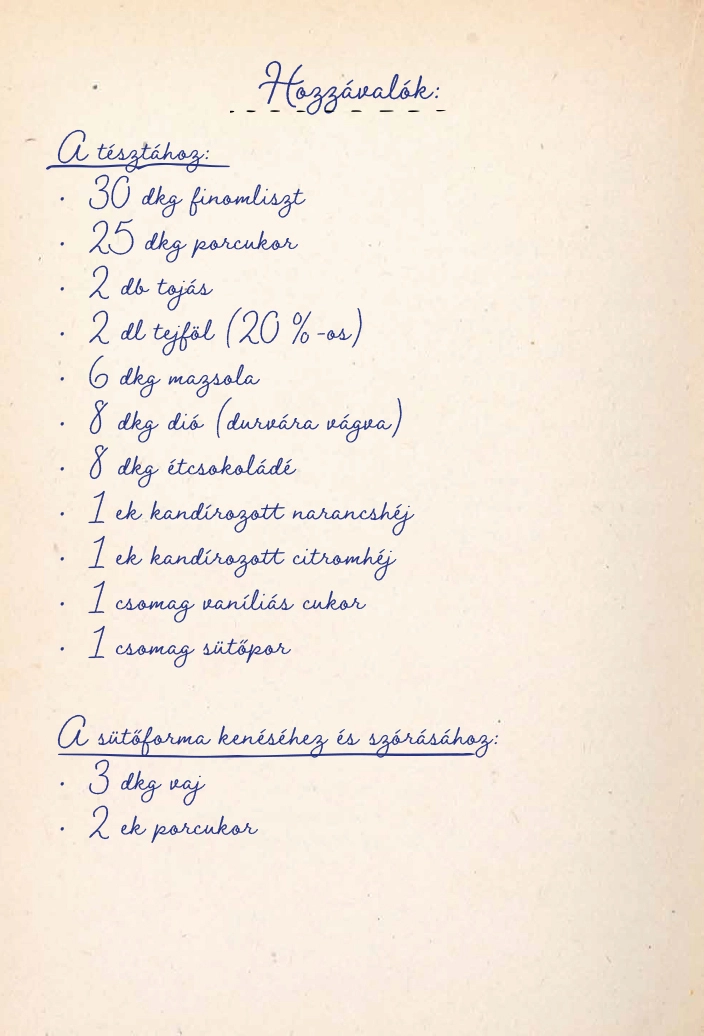 Hozzávalók:
A tésztához:
· 30 dkg finomliszt
· 25 dkg porcukor
· 2 db tojás
· 2 dl tejföl (20 %-os)
· 6 dkg mazsola
· 8 dkg dió (durvára vágva)
· 8 dkg étcsokoládé
· 1 ek kandírozott narancshéj
· 1 ek kandírozott citromhéj
· 1 csomag vaníliás cukor
· 1 csomag sütőpor
A sütőforma kenéséhez és szórásához:
· 3 dkg vaj
· 2 ek porcukor